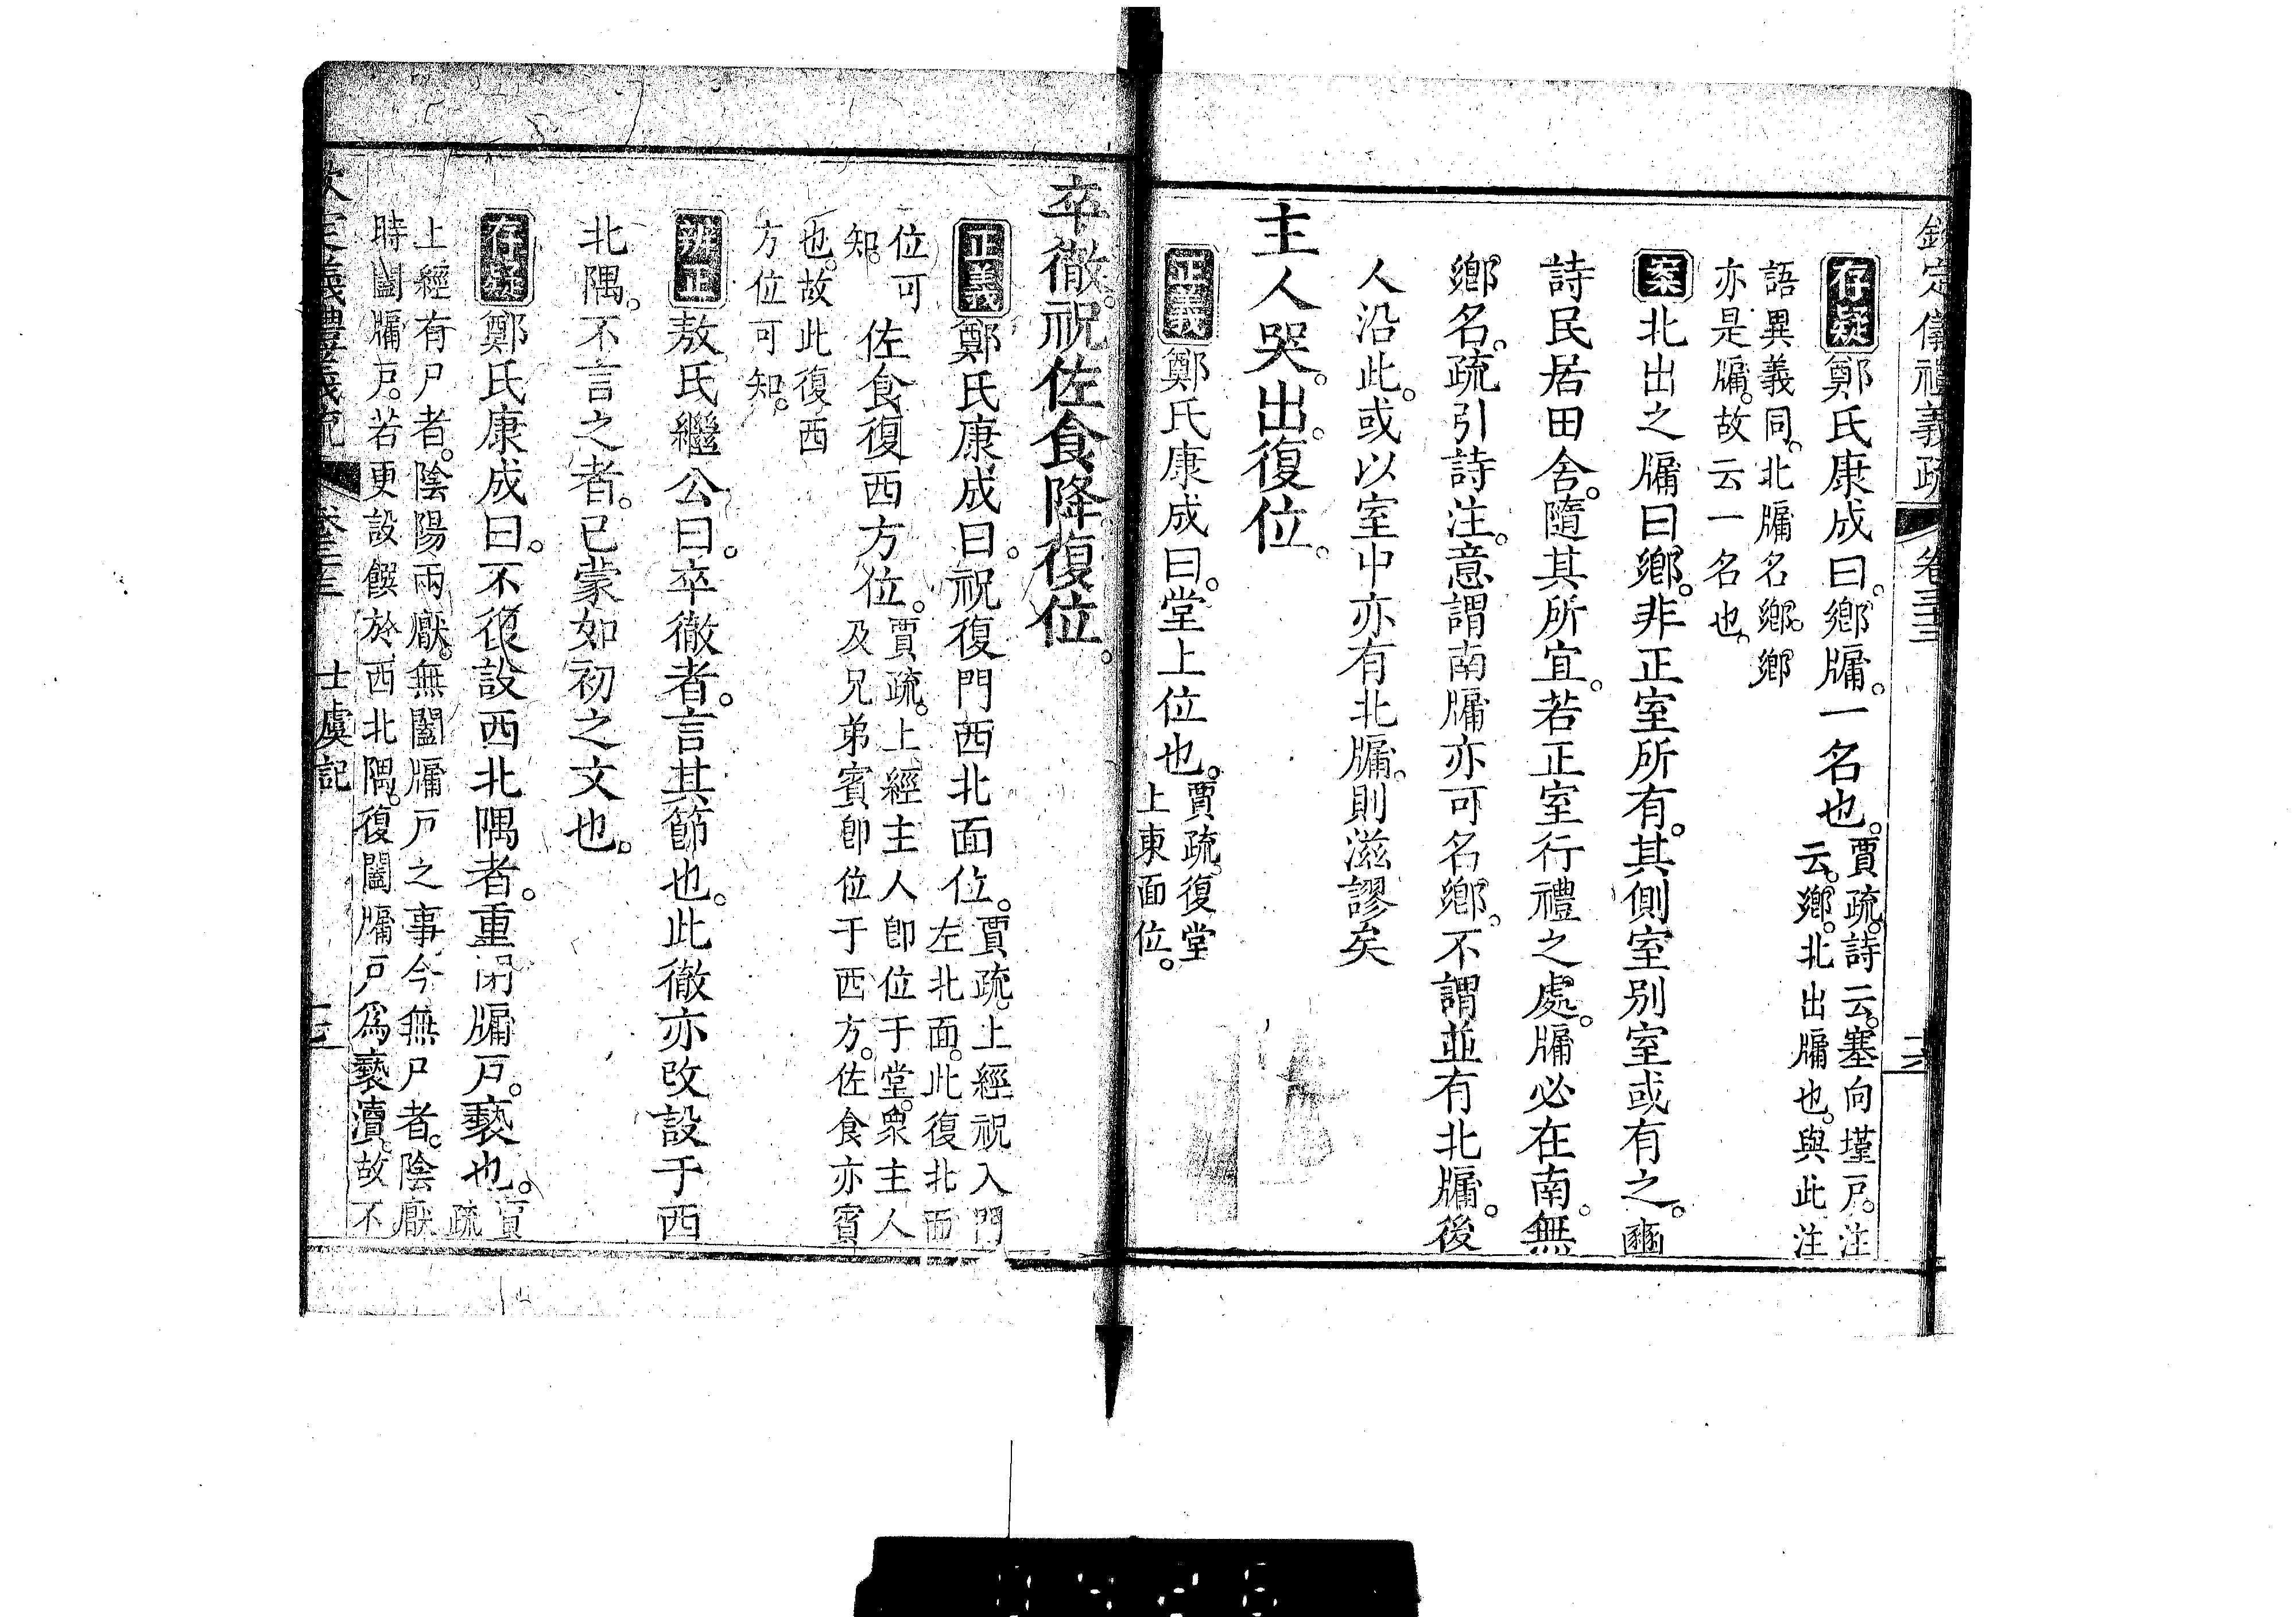 欽定儀禮義疏 卷三十三 六
存疑鄭氏康成曰。鄉牖。一名也。賈疏。詩云。塞向墐戶。注
云。鄉。北出牖也。與此注
語異義同。北牖名鄉。鄉
亦是牖。故云一名也。
案北出之牖曰鄉。非正室所有。其側室別室或有之。豳
詩民居田舍。隨其所宜。若正室行禮之處。牖必在南。無
鄉名。疏引詩注。意謂南牖亦可名鄉。不謂並有北牖。後
人沿此。或以室中亦有北牖。則滋謬矣
主人哭。出。復位。
正義鄭氏康成曰。堂上位也。賈疏。復堂
上東面位。
卒徹。祝佐食降。復位。
正義鄭氏康成曰。祝復門西北面位。賈疏。上經祝入門
左北面。此復北面
位可
知。佐食復西方位。賈疏。上經主人卽位于堂。衆主人
及兄弟賓卽位于西方。佐食亦賓
也。故此復西
方位可知。
辨正敖氏繼公曰。卒徹者。言其節也。此徹亦改設于西
北隅。不言之者。已蒙如初之文也。
存疑鄭氏康成曰。不復設西北隅者。重閉牖戶。褻也。賈
疏
上經有尸者。陰陽兩厭。無闔牖戶之事。今無尸者。陰厭
時闔牖戶。若更設饌於西北隅。復闔牖戶爲褻瀆。故不
欽定儀禮義疏 卷三十三 士虞記